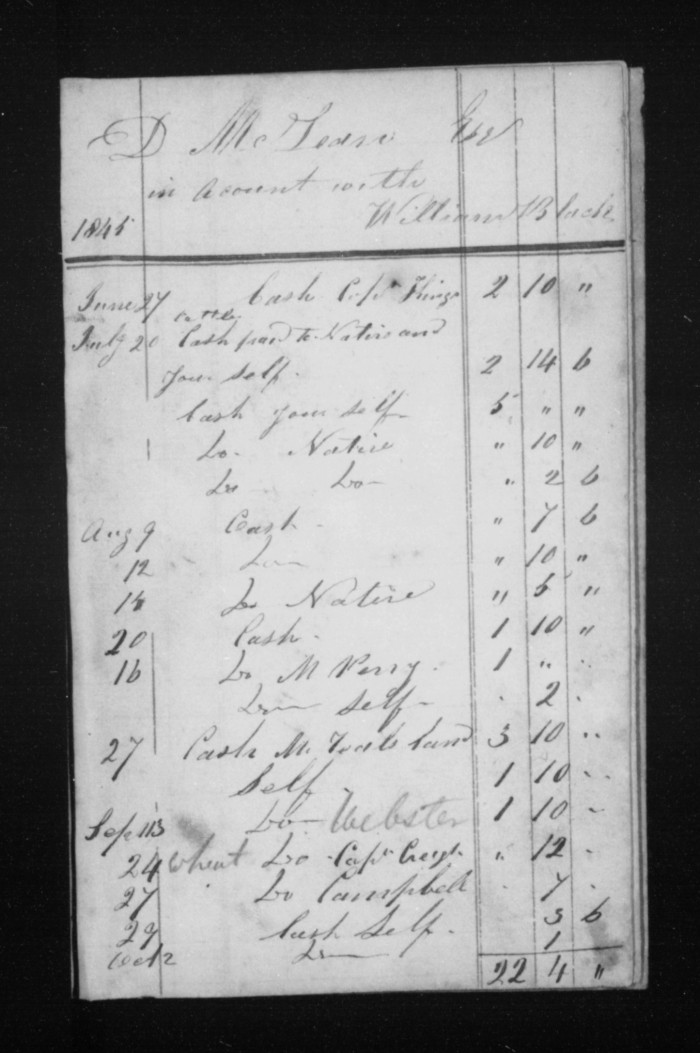 D McLean Esqr
in Acount with
1845 William Black
June 27 Cash Capt Kings 2 10 "
July 20 Cash paid to Natives and
your Self - 2 14 6
Cash your self 5 " "
Do - Native " 10 "
Do - Do - " 2 6
Aug 9 Cash - " 7 6
12 Do " 10 "
15 Do Native " 5 "
20 Cash - 1 10 "
16 Do M Perry - 1 " "
Do Self - 2
27 Cash Mr 3 10 "
Self 1 10 "
Sep 13 Do - Webster 1 10 "
24 Wheat Do - Capt " 12 "
27 Do Campbell 7
29 Cash Self - 3 6
Oct 2 Do 1
22 4 "